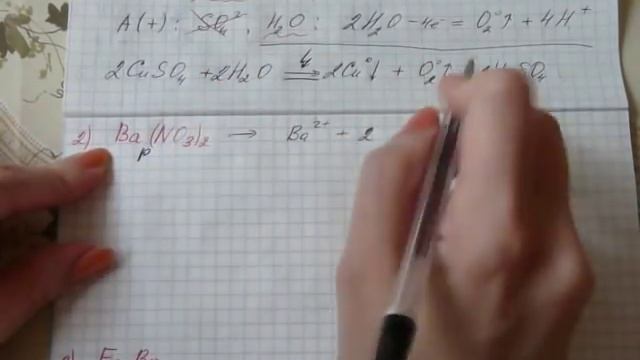 A(+): SO₄²⁻, H₂O: 2H₂O - 4e⁻ = O₂⁰↑ + 4H⁺
2CuSO₄ + 2H₂O 4 2Cu⁰↓ + O₂⁰↑ SO₄
2) Ba(NO₃)₂ → Ba²⁺ + 2
р